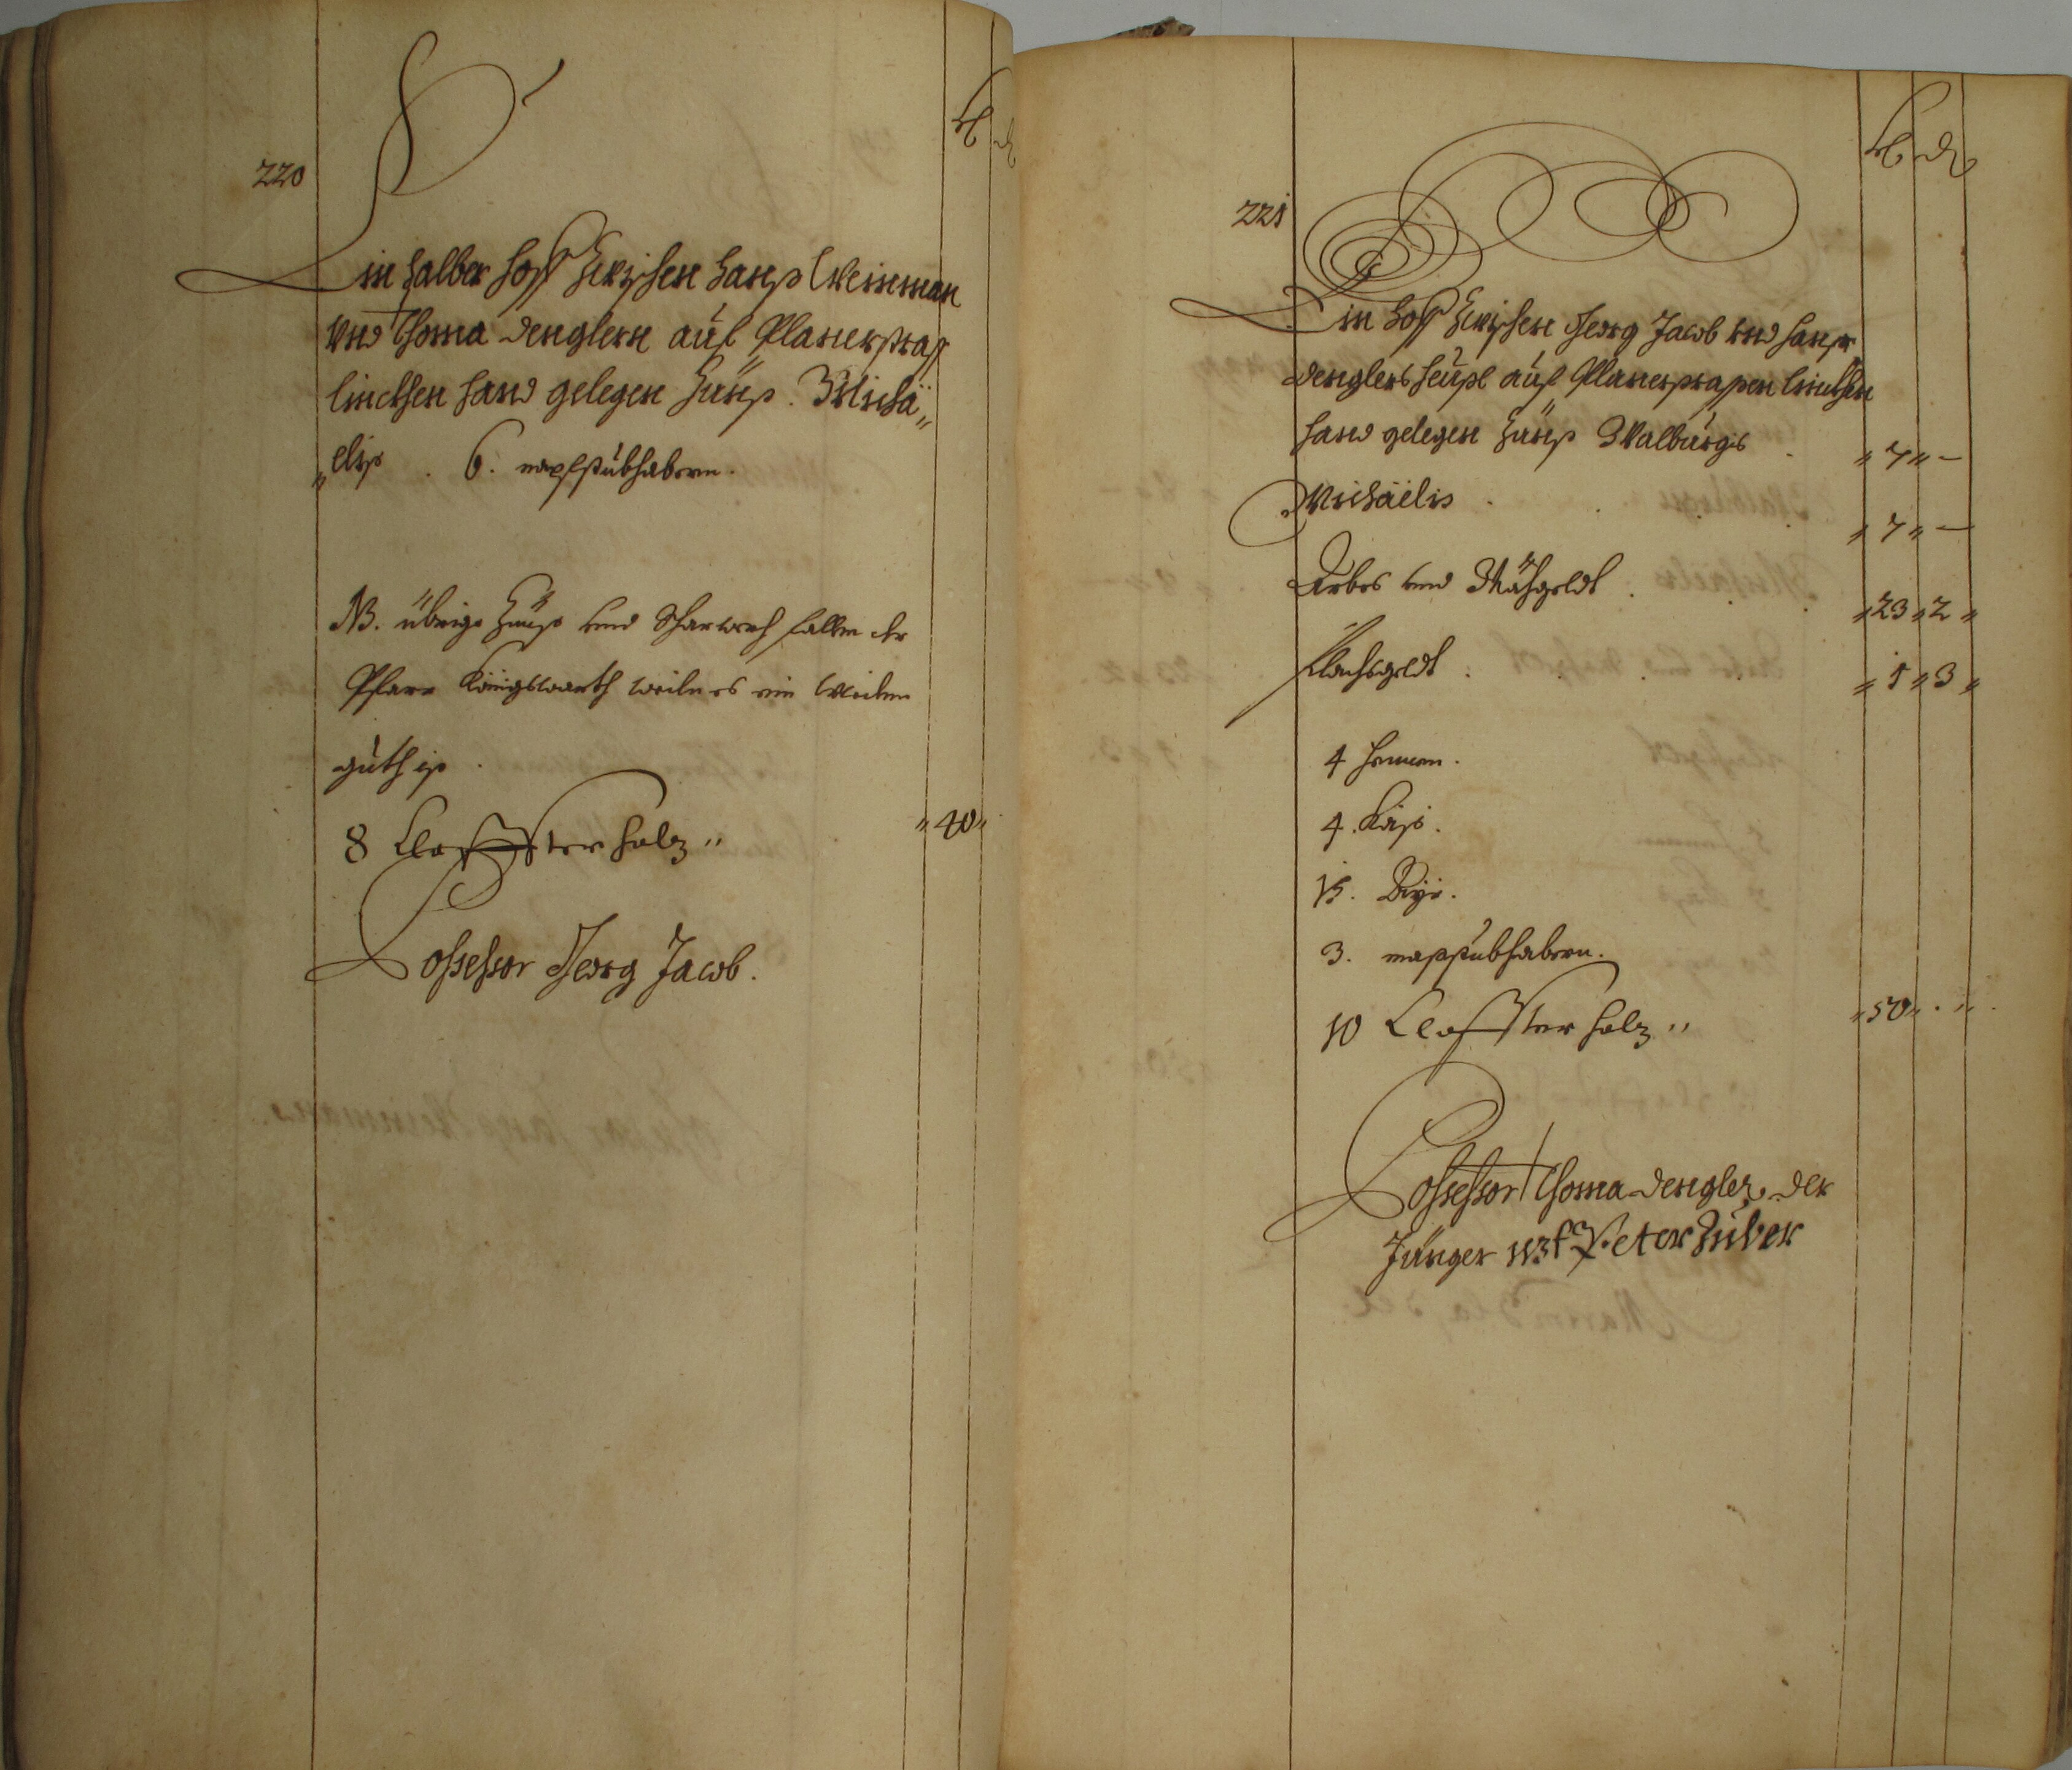 220
Ein halber hoff Zwischen Hanß Weinman
Vnd Thoma Denglern auf Planerstraß
linckhen hand gelegen Zünß. Michä„
„elis . 6. napfstübhabern.
NB. übrige Zünß und Scharwerch fallen der
Pfarr Königswarth weiln es ein
guth ist.
8 Claffter holz „ „40„
Possessor Georg Jacob.
221
Ein hoff Zwischen Georg Jacob vnd Hanß
Denglers heußl auf Planerstraßen linckhen
hand gelegen Zünß Walburgis . „7„ —
Michäelis . „7„ —
Arbes und Mähgeldt . „23„2„
Flachsgeldt . „1„3„
4 hennen.
4. Käß.
15. Ayr.
3. napfstübhabern.
10 Claffter holz „ „50„ . „
Possessor Thoma Dengler der
Jünger Peter Zuber